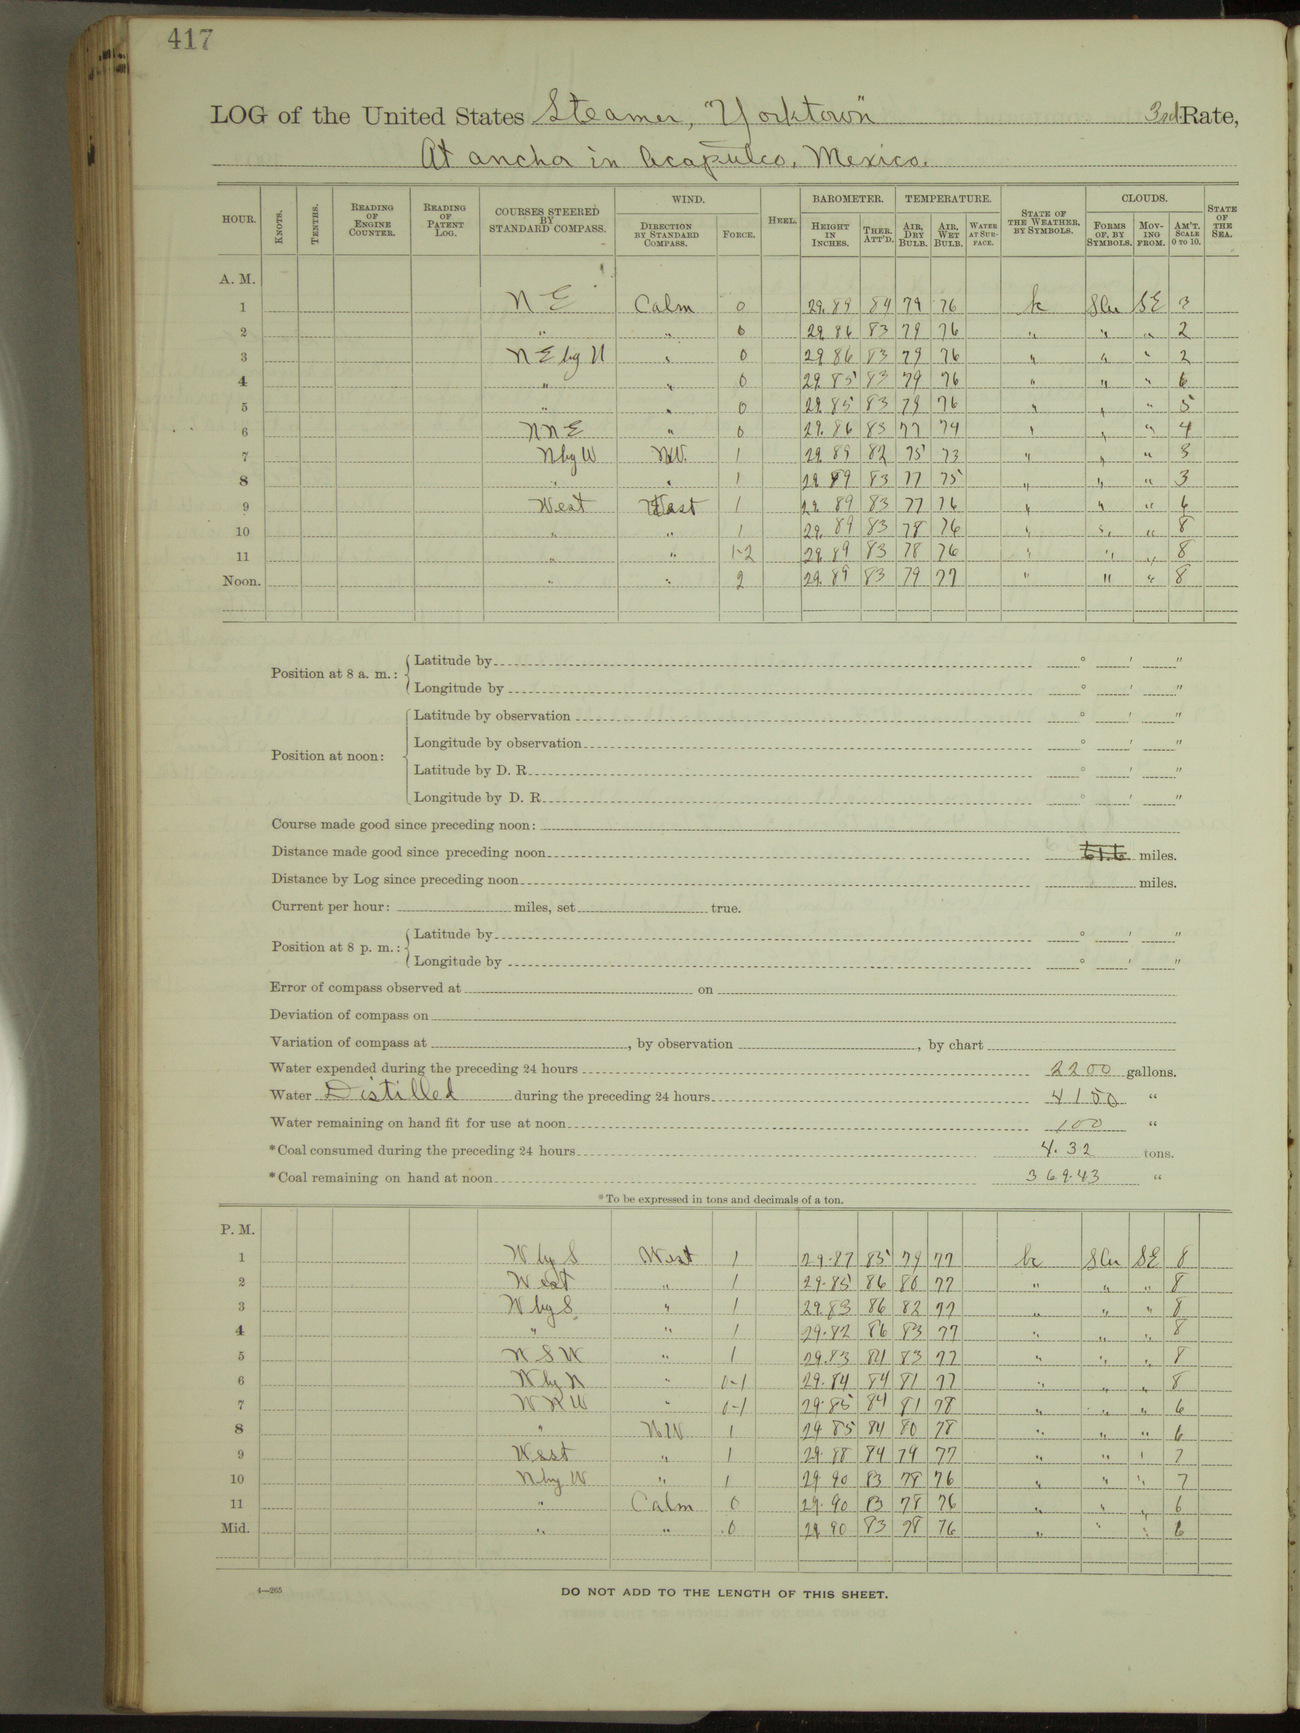 417
LOG of the United States Steamer, "Yorktown" 3rd Rate,
At anchor in Acapulco, Mexico.
HOUR. KNOTS. TENTHS. READING OF ENGINE COUNTER. READING OF PATENT LOG. COURSES STEERED BY STANDARD COMPASS. WIND. DIRECTION BY STANDARD COMPASS. FORCE. HEEL. BAROMETER. HEIGHT IN INCHES. THER. ATT'D. TEMPERATURE. AIR, DRY BULB. AIR, WET BULB. WATER AT SURFACE. STATE OF THE WEATHER, BY SYMBOLS. CLOUDS. FORMS OF, BY SYMBOLS. MOVING FROM. AM'T. SCALE 0 TO 10. STATE OF THE SEA.
A. M.
1 N E Calm 0 29.89 84 79 76 bc SCu SE 3
2 " " 0 29.86 83 79 76 " " " 2
3 N E by N " 0 29.86 83 79 76 " " " 2
4 " " 0 29.85 83 79 76 " " " 6
5 " " 0 29.85 83 79 76 " " " 5
6 NNE " 0 29.86 83 77 74 " " " 4
7 N by W NW. 1 29.89 82 75 73 " " " 3
8 " " 1 29.89 83 77 75 " " " 3
9 West West 1 29.89 83 77 76 " " " 6
10 " " 1 29.89 83 78 76 " " " 8
11 " " 1-2 29.89 83 78 76 " " " 8
Noon. " " 2 29.89 83 79 77 " " " 8
Position at 8 a. m.: Latitude by ° ′ ″
Longitude by ° ′ ″
Position at noon: Latitude by observation ° ′ ″
Longitude by observation ° ′ ″
Latitude by D. R. ° ′ ″
Longitude by D. R. ° ′ ″
Course made good since preceding noon:
Distance made good since preceding noon 61.6 miles.
Distance by Log since preceding noon miles.
Current per hour: miles, set true.
Position at 8 p. m.: Latitude by ° ′ ″
Longitude by ° ′ ″
Error of compass observed at on
Deviation of compass on
Variation of compass at , by observation , by chart
Water expended during the preceding 24 hours 2200 gallons.
Water Distilled during the preceding 24 hours 4150 "
Water remaining on hand fit for use at noon 100 "
*Coal consumed during the preceding 24 hours 4.32 tons.
*Coal remaining on hand at noon 369.43 "
*To be expressed in tons and decimals of a ton.
P. M.
1 W by S West 1 29.87 85 79 77 bc SCu SE 8
2 West " 1 29.85 86 80 77 " " " 8
3 W by S " 1 29.83 86 82 77 " " " 8
4 " " 1 29.82 86 83 77 " " " 8
5 W S W " 1 29.83 84 83 77 " " " 8
6 W by N " 0-1 29.84 84 81 77 " " " 8
7 W N W " 0-1 29.85 84 81 78 " " " 6
8 " NW 1 29.85 84 80 78 " " " 6
9 West " 1 29.88 84 79 77 " " " 7
10 N by W " 1 29.90 83 78 76 " " " 7
11 " Calm 0 29.90 83 78 76 " " " 6
Mid. " " 0 29.90 83 78 76 " " " 6
4—265
DO NOT ADD TO THE LENGTH OF THIS SHEET.